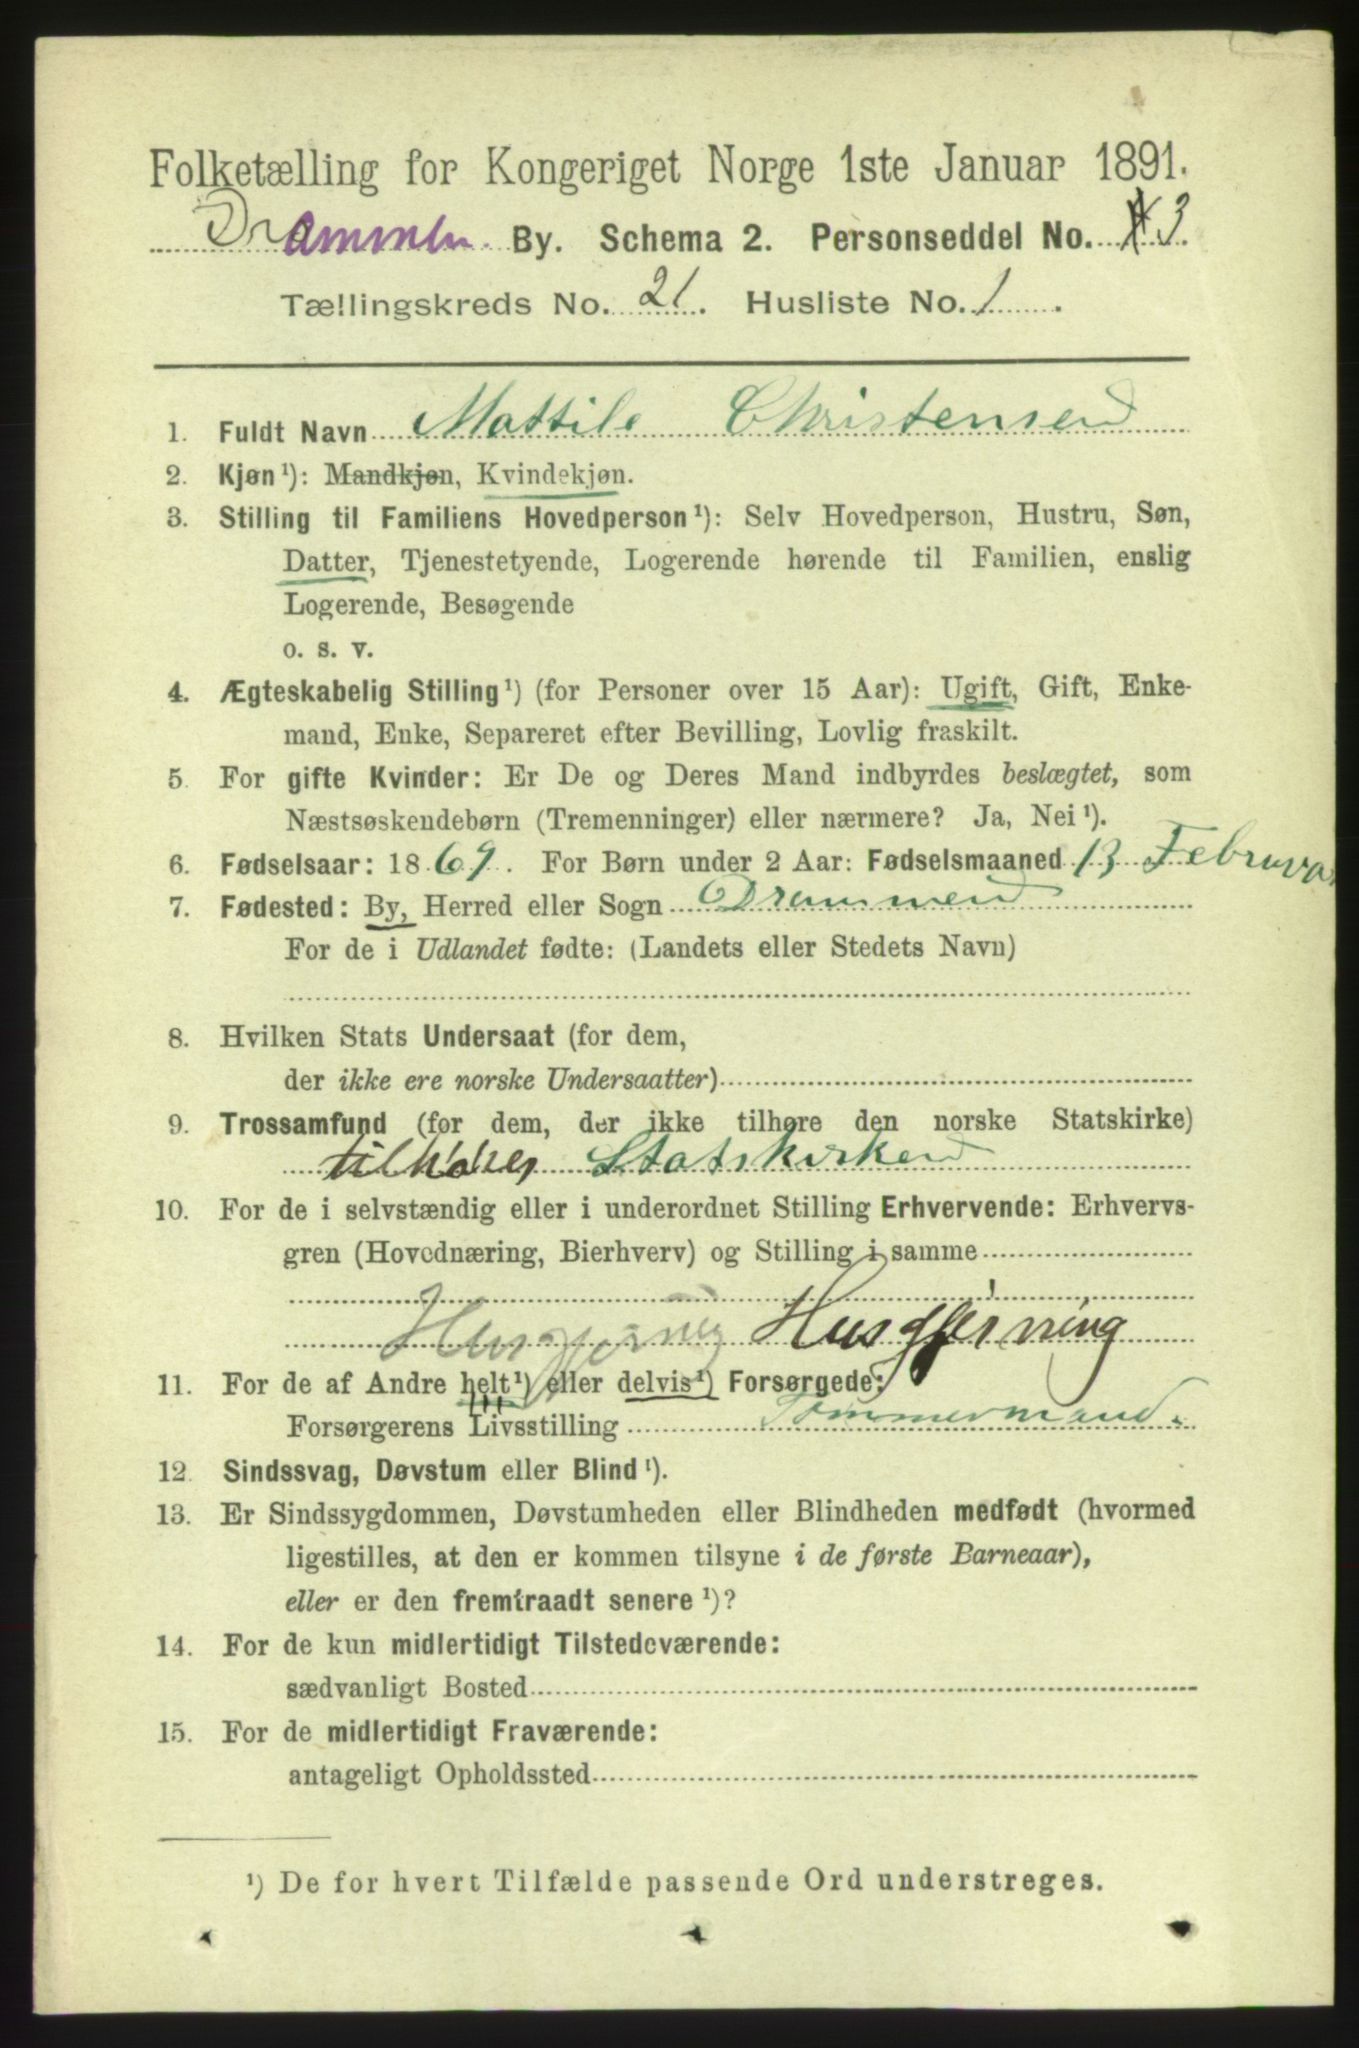 Folketælling for Kongeriget Norge 1ste Januar 1891.
Drammen. By. Schema 2. Personseddel No. 3
Tællingskreds No. 21. Husliste No. 1.
1. Fuldt Navn Mattile Christensen
2. Kjøn¹): Mandkjøn, Kvindekjøn.
3. Stilling til Familiens Hovedperson¹): Selv Hovedperson, Hustru, Søn,
Datter, Tjenestetyende, Logerende hørende til Familien, enslig
Logerende, Besøgende
o. s. v.
4. Ægteskabelig Stilling¹) (for Personer over 15 Aar): Ugift, Gift, Enke-
mand, Enke, Separeret efter Bevilling, Lovlig fraskilt.
5. For gifte Kvinder: Er De og Deres Mand indbyrdes beslægtet, som
Næstsøskendebørn (Tremenninger) eller nærmere? Ja, Nei¹).
6. Fødselsaar: 1869. For Børn under 2 Aar: Fødselsmaaned 13 Februar
7. Fødested: By, Herred eller Sogn Drammen
For de i Udlandet fødte: (Landets eller Stedets Navn)
8. Hvilken Stats Undersaat (for dem,
der ikke ere norske Undersaatter)
9. Trossamfund (for dem, der ikke tilhøre den norske Statskirke)
tilhører Statskirken
10. For de i selvstændig eller i underordnet Stilling Erhvervende: Erhvervs-
gren (Hovednæring, Bierhverv) og Stilling i samme
Husgjerning Husgjerning
11. For de af Andre helt¹) eller delvis¹) Forsørgede:
Forsørgerens Livsstilling Tømmermand.
12. Sindssvag, Døvstum eller Blind¹).
13. Er Sindssygdommen, Døvstumheden eller Blindheden medfødt (hvormed
ligestilles, at den er kommen tilsyne i de første Barneaar),
eller er den fremtraadt senere¹)?
14. For de kun midlertidigt Tilstedeværende:
sædvanligt Bosted
15. For de midlertidigt Fraværende:
antageligt Opholdssted
¹) De for hvert Tilfælde passende Ord understreges.